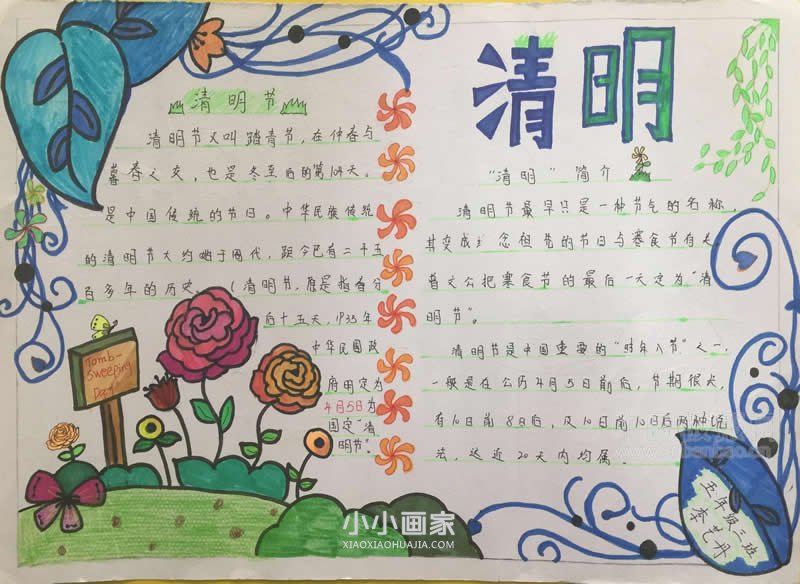 清明节
清明节又叫踏青节，在仲春与
暮春之交，也是冬至后的第104天。
是中国传统的节日。中华民族传统
的清明节大约始于周代，距今已有二千五
百多年的历史。（清明节，原是指春分
后十五天，1935年
中华民国政
府明定为
4月5日为
国定“清
明节”。
Tomb-
Sweeping
Day
清明
“清明”简介
清明节最早只是一种节气的名称，
其变成纪念祖先的节日与寒食节有关
晋文公把寒食节的最后一天定为“清
明节”。
清明节是中国重要的“时年八节”之一，
一般是在公历4月5日前后，节期很长，
有10日前8日后，及10日前10日后两种说
法，这近20天内均属。
五年级三班
李艺丹
小小画家
XIAOXIAOHUAJIA.COM